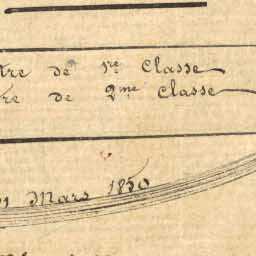 tre de 1re Classe
re de 2me Classe
1 Mars 1850